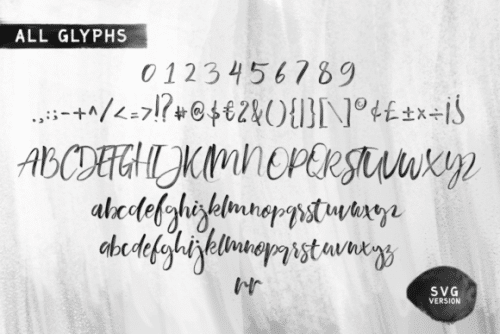 ALL GLYPHS
0 1 2 3 4 5 6 7 8 9
.,:;-+^/<=>!?#@$€2&(){|}[\]©¢£±×÷¡
ABCDEFGHIJKLMNOPQRSTUVWXYZ
abcdefghijklmnopqrstuvwxyz
abcdefghijklmnopqrstuvwxyz
rr
SVG
VERSION